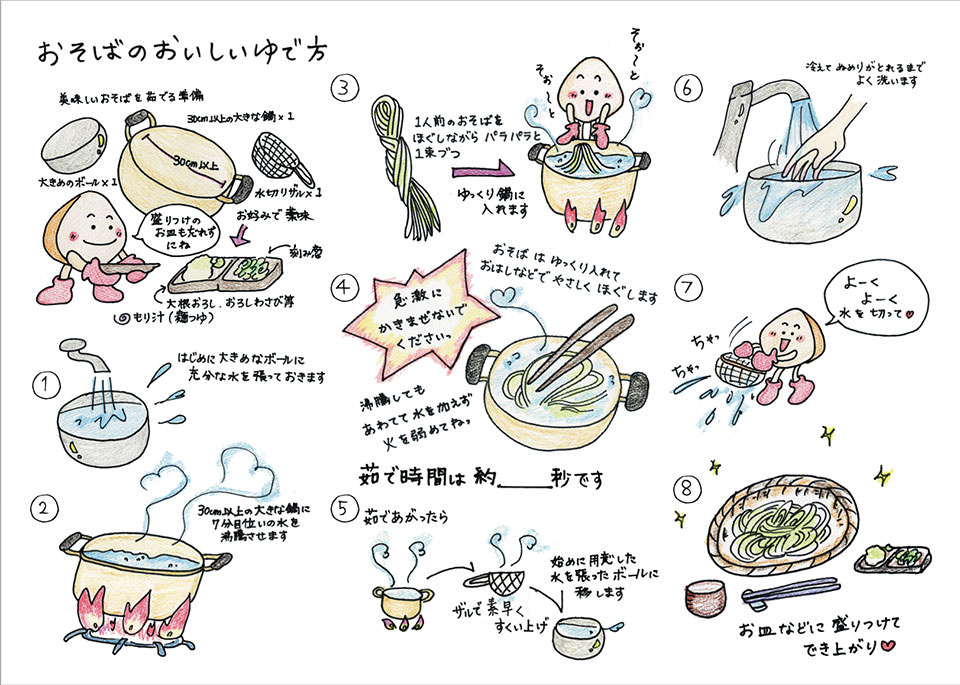 おそばのおいしいゆで方
美味しいおそばを茹でる準備
30cm以上の大きな鍋×1
30cm以上
大きめのボール×1
水切りザル×1
お好みで薬味
盛りつけの
お皿も忘れず
にね
刻み葱
大根おろし、おろしわさび等
もり汁(麺つゆ)
①
はじめに大きめなボールに
充分な水を張っておきます
②
30cm以上の大きな鍋に
7分目位いの水を
沸騰させます
③
1人前のおそばを
ほぐしながら パラパラと
1束づつ
ゆっくり鍋に
入れます
そぉ〜と
そぉ〜と
④
おそばはゆっくり入れて
おはしなどでやさしくほぐします
急激に
かきまぜないで
くださいっ
沸騰しても
あわてて水を加えず
火を弱めてねっ
茹で時間は約____秒です
⑤
茹であがったら
ザルで素早く
すくい上げ
始めに用意した
水を張ったボールに
移します
⑥
冷えてぬめりがとれるまで
よく洗います
⑦
よーく
よーく
水を切って♥
ちゃっ
ちゃっ
⑧
お皿などに盛りつけて
でき上がり♥